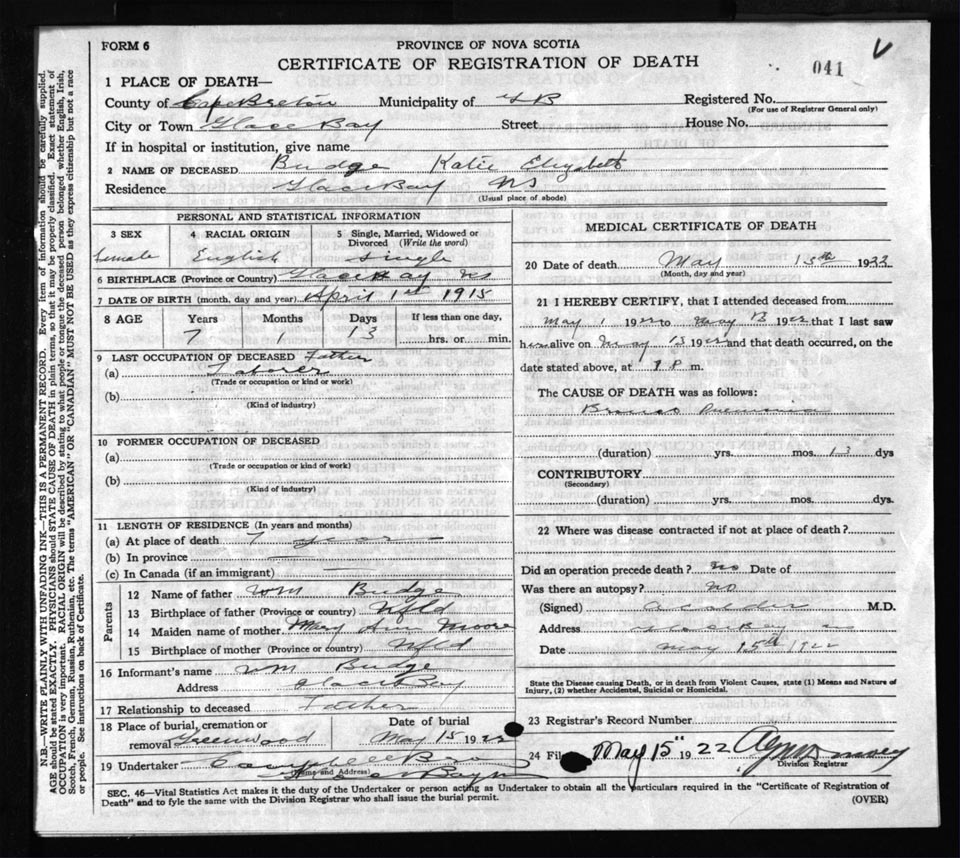 FORM 6
PROVINCE OF NOVA SCOTIA
CERTIFICATE OF REGISTRATION OF DEATH
041
1 PLACE OF DEATH—
County of Cape Breton Municipality of G B Registered No.
(For use of Registrar General only)
City or Town Glace Bay Street House No.
If in hospital or institution, give name
2 NAME OF DECEASED Budge Katie Elizabeth
Residence Glace Bay NS
(Usual place of abode)
PERSONAL AND STATISTICAL INFORMATION
3 SEX 4 RACIAL ORIGIN 5 Single, Married, Widowed or Divorced (Write the word)
female English Single
6 BIRTHPLACE (Province or Country) Glace Bay NS
7 DATE OF BIRTH (month, day and year) April 1st 1915
8 AGE Years Months Days If less than one day,
7 1 13 hrs. or min.
9 LAST OCCUPATION OF DECEASED Father
(a) Laborer
(Trade or occupation or kind or work)
(b)
(Kind of industry)
10 FORMER OCCUPATION OF DECEASED
(a)
(Trade or occupation or kind of work)
(b)
(Kind of industry)
11 LENGTH OF RESIDENCE (In years and months)
(a) At place of death 7 years
(b) In province
(c) In Canada (if an immigrant)
Parents
12 Name of father Wm Budge
13 Birthplace of father (Province or country) Nfld
14 Maiden name of mother Mary Ann Moore
15 Birthplace of mother (Province or country) Nfld
16 Informant's name Wm Budge
Address Glace Bay
17 Relationship to deceased Father
18 Place of burial, cremation or removal Greenwood Date of burial May 15 1922
19 Undertaker Campbell Bros
(Name and Address) Glace Bay
MEDICAL CERTIFICATE OF DEATH
20 Date of death May 13th 1922
(Month, day and year)
21 I HEREBY CERTIFY, that I attended deceased from
May 1 1922 to May 13 1922 that I last saw
her alive on May 13 1922 and that death occurred, on the
date stated above, at P. m.
The CAUSE OF DEATH was as follows:
Pneumonia
(duration) yrs. mos. 13 dys
CONTRIBUTORY
(Secondary)
(duration) yrs. mos. dys.
22 Where was disease contracted if not at place of death?
Did an operation precede death? No Date of
Was there an autopsy? No
(Signed) M.D.
Address Glace Bay
Date May 15th 1922
State the Disease causing Death, or in death from Violent Causes, state (1) Means and Nature of
Injury, (2) whether Accidental, Suicidal or Homicidal.
23 Registrar's Record Number
24 Fil May 15" 1922
Division Registrar
SEC. 46—Vital Statistics Act makes it the duty of the Undertaker or person acting as Undertaker to obtain all the particulars required in the "Certificate of Registration of
Death" and to fyle the same with the Division Registrar who shall issue the burial permit.
(OVER)
N.B.—WRITE PLAINLY WITH UNFADING INK—THIS IS A PERMANENT RECORD. Every item of information should be carefully supplied.
AGE should be stated EXACTLY. PHYSICIANS should STATE CAUSE OF DEATH in plain terms, so that it may be properly classified. Exact statement of
OCCUPATION is very important. RACIAL ORIGIN will be described by stating to what people or tongue the deceased person belonged whether English, Irish,
Scotch, French, German, Russian, Ruthenian, etc. The terms "AMERICAN" OR "CANADIAN" MUST NOT BE USED as they express citizenship but not a race
or people. See instructions on back of Certificate.